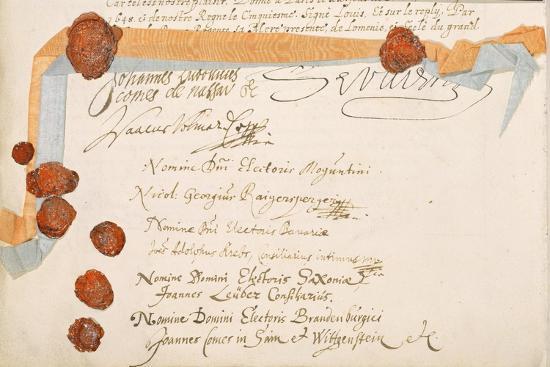 Car tel est nostre plaisir. Donné a Paris le
1648. et de nostre Regne le Cinquiesme. Signé Louis, Et sur le reply, Par
la Mere presente, de Lomenie, et scellé du grand
Johannes Ludovicus
comes de Nassau &
Servien
Isaacus Volmar
Nomine Dni Electoris Moguntini.
Nicol: Georgius Raigersperger
Nomine Dni Electoris Bavariæ
Joan Adolphus Krebs, Consiliarius intimus mp
Nomine Domini Electoris Saxoniæ
Joannes Leüber Consiliarius.
Nomine Domini Electoris Brandenburgici
Joannes Comes in Sain et Wittgenstein etc.